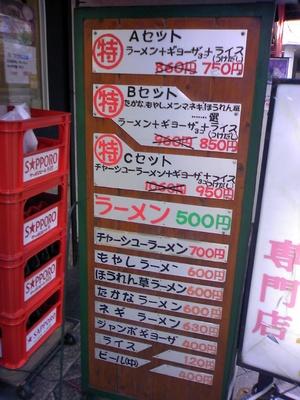 特 Aセット
ラーメン+ギョーザ3コ+ライス
(つけだし)
860円 750円
特 Bセット
たかな、もやし、メンマ、ネギ、ほうれん草
……選
ラーメン+ギョーザ3コ+ライス
(つけだし)
960円 850円
特 Cセット
チャーシューラーメン+ギョーザ+ライス
950円
ラーメン 500円
チャーシューラーメン 700円
もやしラーメン 600円
ほうれん草ラーメン 600円
たかなラーメン 600円
ネギラーメン 630円
ジャンボギョーザ 400円
ライス 120円
ビール(中) 400円
S★PPORO
S★PPORO
S★PPORO
SAPPORO
専門店